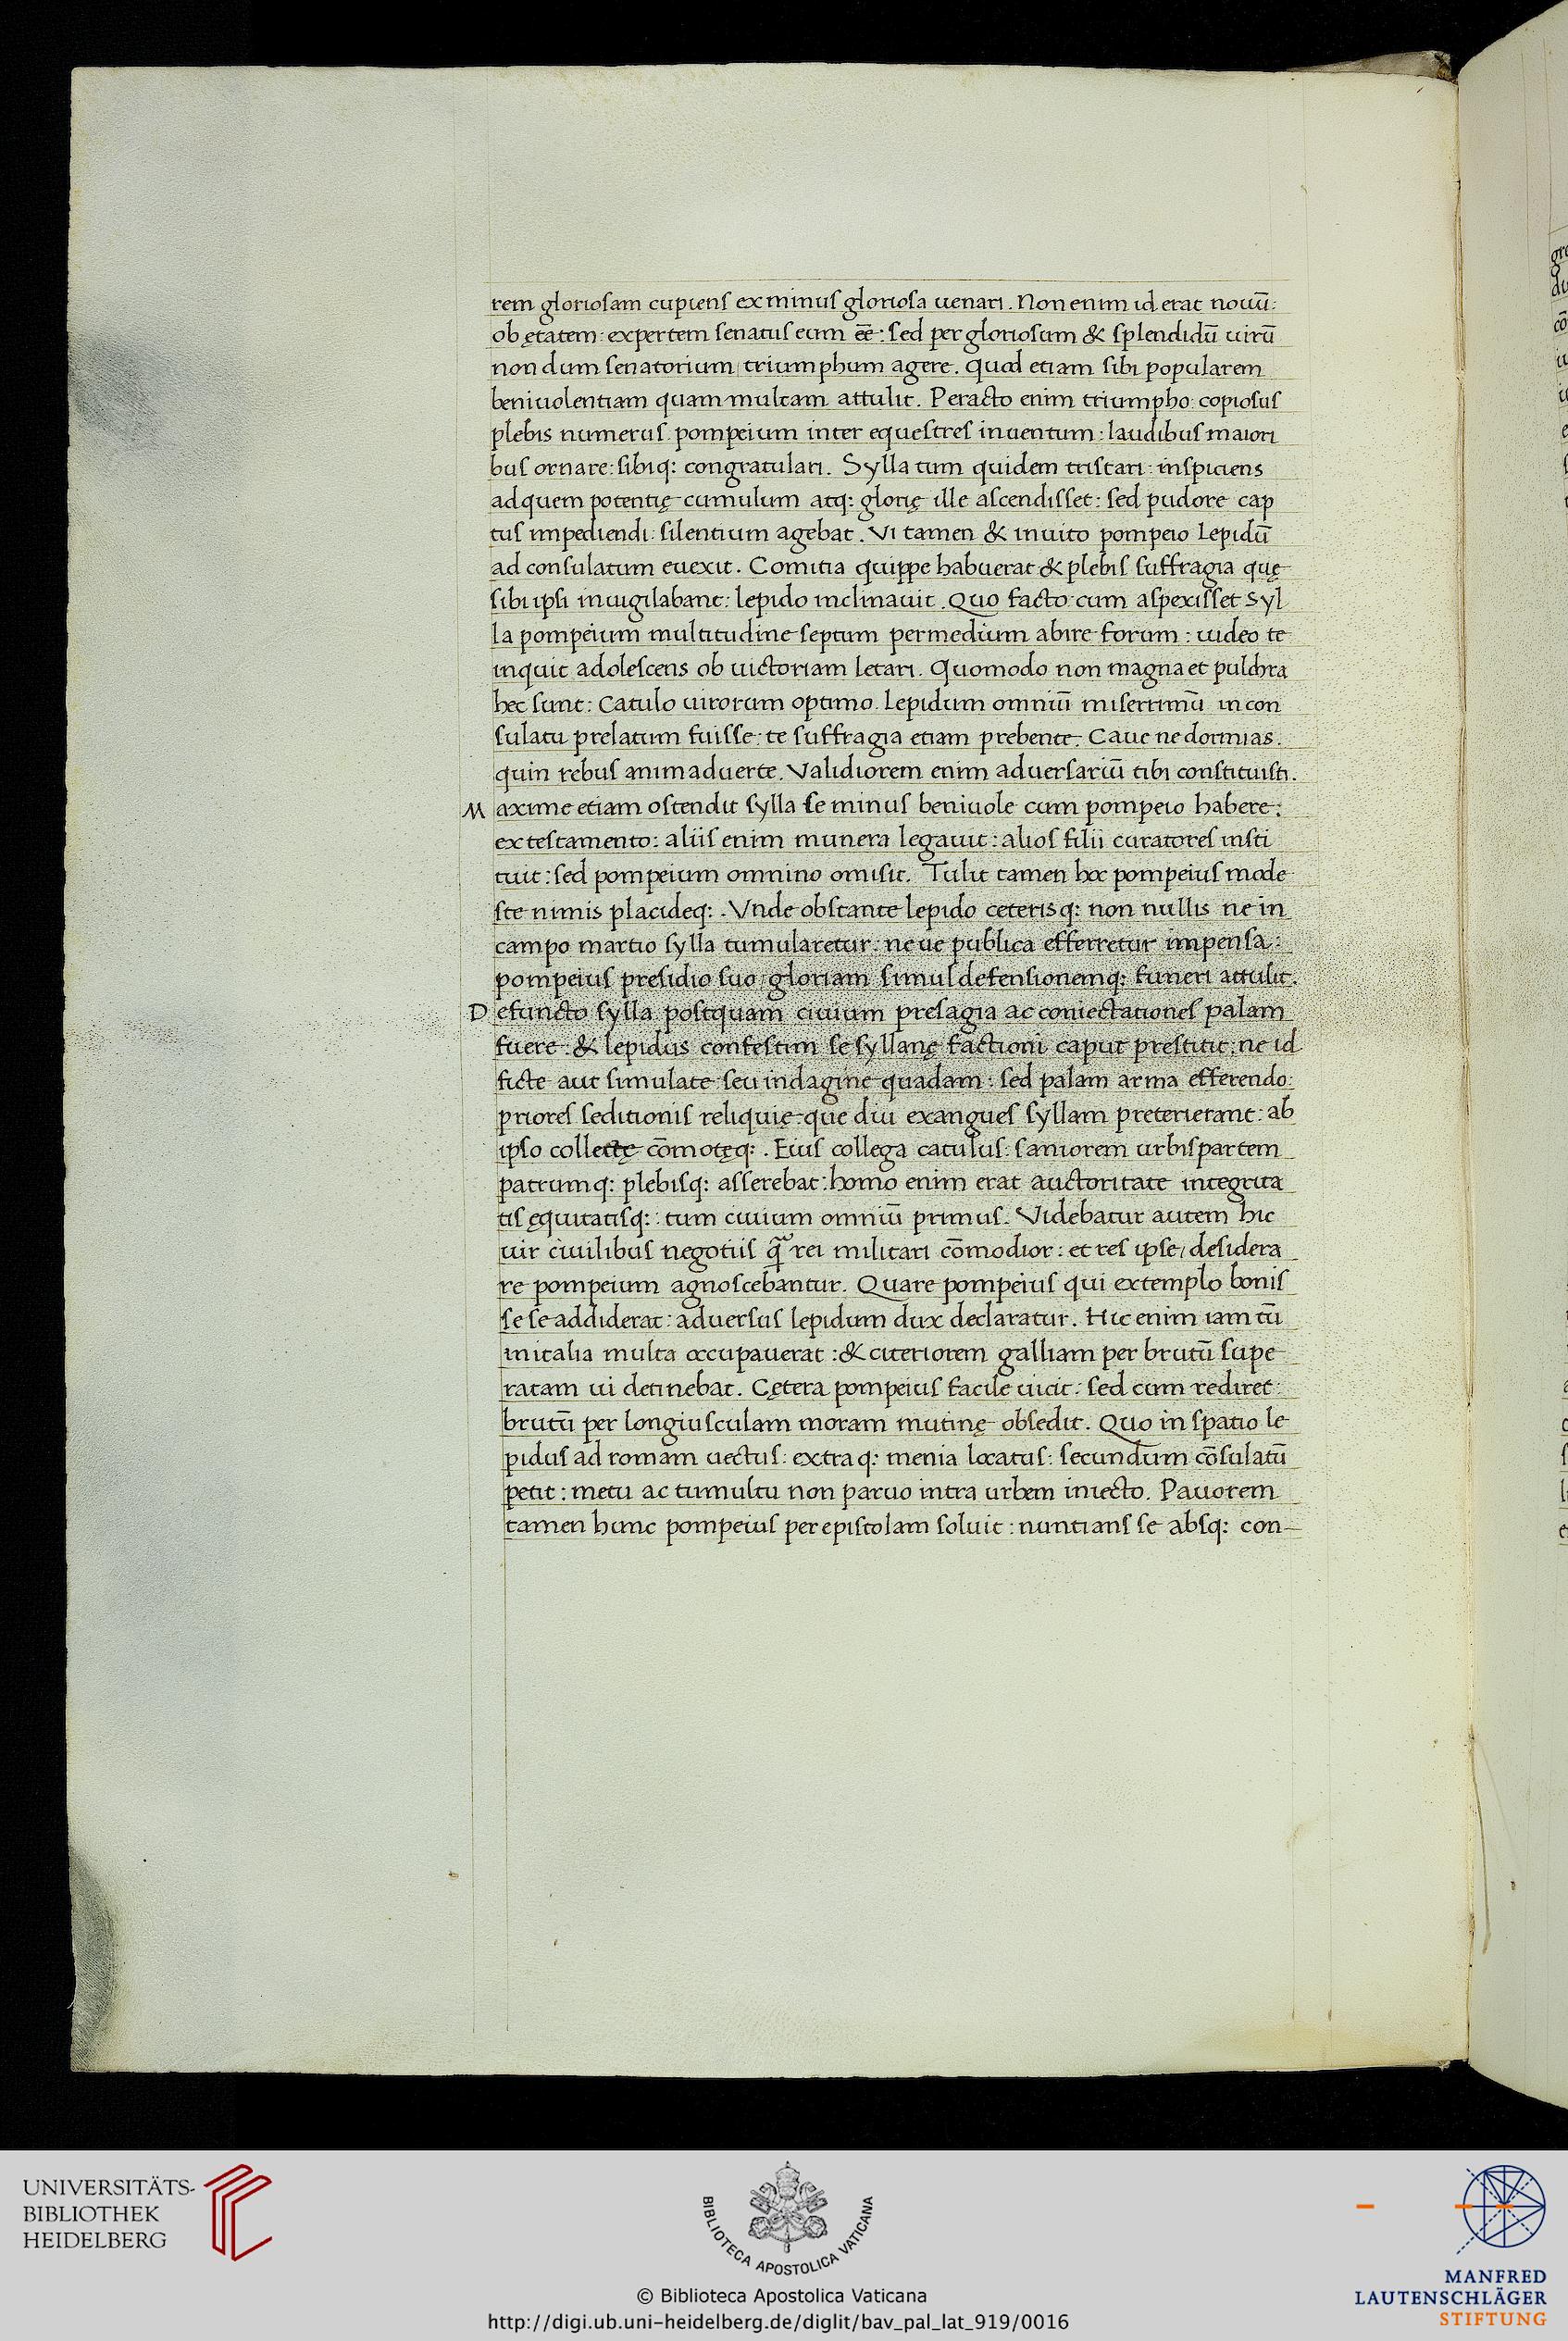 rem gloriosam cupiens ex minus gloriosa uenari. Non enim id erat nouū:
ob ętatem: expertem senatus eum eē: sed per gloriosum & splendidū uirū
non dum senatorium triumphum agere. Quod etiam sibi popularem
beniuolentiam quam multam attulit. Peracto enim triumpho: copiosus
plebis numerus pompeium inter equestres inuentum: laudibus maiori
bus ornare: sibiq: congratulari. Sylla tum quidem tristari: inspiciens
ad quem potentię cumulum atq: glorię ille ascendisset: sed pudore cap
tus impediendi: silentium agebat. Vi tamen & inuito pompeio Lepidū
ad consulatum euexit. Comitia quippe habuerat & plebis suffragia quę
sibi ipsi inuigilabant: lepido inclinauit. Quo facto cum aspexisset Syl
la pompeium multitudine septum per medium abire forum: uideo te
inquit adolescens ob uictoriam letari. Quomodo non magna et pulchra
hec sunt: Catulo uirorum optimo. Lepidum omniū miserrimū in con
sulatu prelatum fuisse: te suffragia etiam prebente. Caue ne dormias.
quin rebus animaduerte. Validiorem enim aduersariū tibi constituisti.
Maxime etiam ostendit sylla se minus beniuole cum pompeio habere:
ex testamento: aliis enim munera legauit: alios filii curatores insti
tuit: sed pompeium omnino omisit. Tulit tamen hoc pompeius mode
ste nimis placideq:. Vnde obstante lepido ceterisq: non nullis ne in
campo martio sylla tumularetur: ne ue publica efferretur impensa:
pompeius presidio suo gloriam simul defensionemq: funeri attulit.
Defuncto sylla postquam ciuium presagia ac coniectationes palam
fuere: & lepidus confestim se syllanę factioni caput prestitit: ne id
ficte aut simulate seu indagine quadam: sed palam arma efferendo:
priores seditionis reliquię que diu exangues syllam preterierant: ab
ipso collectę cōmotęq:. Eius collega catulus: saniorem urbis partem
patrumq: plebisq: asserebat: homo enim erat auctoritate integrita
tis ęquitatisq:: tum ciuium omniū primus. Videbatur autem hic
uir ciuilibus negotiis q̄ rei militari cōmodior: et res ipse desidera
re pompeium agnoscebantur. Quare pompeius qui extemplo bonis
se se addiderat: aduersus lepidum dux declaratur. Hic enim iam tū
in italia multa occupauerat: & citeriorem galliam per brutū supe
ratam ui detinebat. Cętera pompeius facile uicit: sed cum rediret:
brutū per longiusculam moram mutinę obsedit. Quo in spatio le
pidus ad romam uectus: extraq: menia locatus: secundum cōsulatū
petit: metu ac tumultu non paruo intra urbem iniecto. Pauorem
tamen hunc pompeius per epistolam soluit: nuntians se absq: con-
UNIVERSITÄTS-
BIBLIOTHEK
HEIDELBERG
BIBLIOTECA APOSTOLICA VATICANA
© Biblioteca Apostolica Vaticana
http://digi.ub.uni-heidelberg.de/diglit/bav_pal_lat_919/0016
MANFRED
LAUTENSCHLÄGER
STIFTUNG